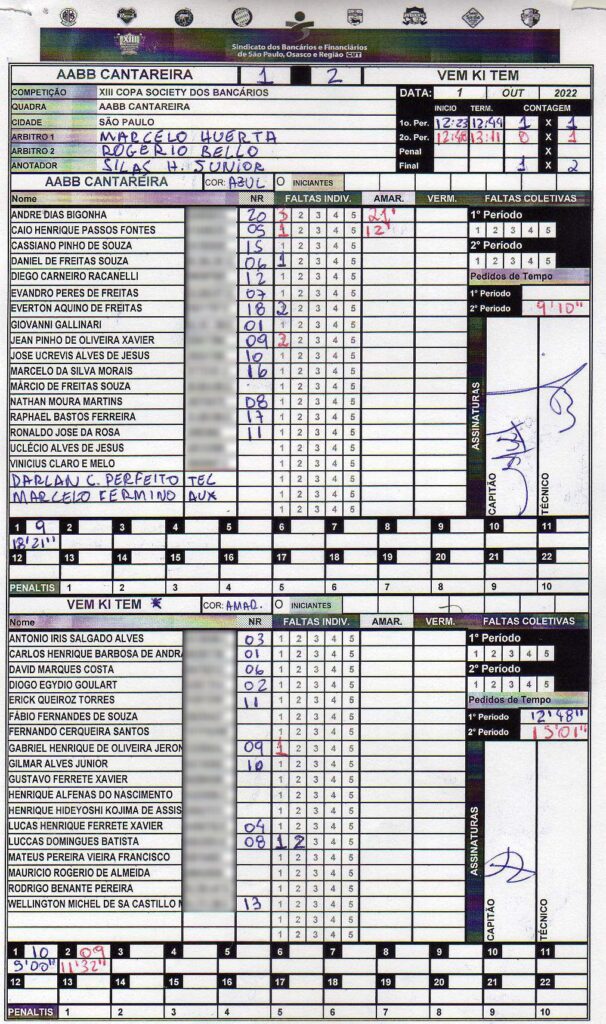 XXIII
Sindicato dos Bancários e Financiários
de São Paulo, Osasco e Região CUT
AABB CANTAREIRA 1 2 VEM KI TEM
COMPETIÇÃO XIII COPA SOCIETY DOS BANCÁRIOS DATA: 1 OUT 2022
QUADRA AABB CANTAREIRA INICIO TERM. CONTAGEM
CIDADE SÃO PAULO 1o. Per. 12:23 12:44 1 X 1
ARBITRO 1 MARCELO HUERTA 2o. Per. 13:11 0 X 1
ARBITRO 2 ROGERIO BELLO Penal X
ANOTADOR SILAS H. JUNIOR Final 1 X 2
AABB CANTAREIRA COR: AZUL O INICIANTES
Nome NR FALTAS INDIV. AMAR. VERM. FALTAS COLETIVAS
ANDRE DIAS BIGONHA 20 3 2 3 4 5 21' 1º Período
CAIO HENRIQUE PASSOS FONTES 05 1 2 3 4 5 12' 1 2 3 4 5
CASSIANO PINHO DE SOUZA 15 1 2 3 4 5 2º Período
DANIEL DE FREITAS SOUZA 06 1 2 3 4 5 1 2 3 4 5
DIEGO CARNEIRO RACANELLI 12 1 2 3 4 5 Pedidos de Tempo
EVANDRO PERES DE FREITAS 07 1 2 3 4 5 1º Periodo
EVERTON AQUINO DE FREITAS 18 2 2 3 4 5 2º Periodo 9'10"
GIOVANNI GALLINARI 01 1 2 3 4 5
JEAN PINHO DE OLIVEIRA XAVIER 09 2 2 3 4 5
JOSE UCREVIS ALVES DE JESUS 10 1 2 3 4 5
MARCELO DA SILVA MORAIS 16 1 2 3 4 5
MÁRCIO DE FREITAS SOUZA 1 2 3 4 5
NATHAN MOURA MARTINS 08 1 2 3 4 5
RAPHAEL BASTOS FERREIRA 17 1 2 3 4 5
RONALDO JOSE DA ROSA 11 1 2 3 4 5
UCLÉCIO ALVES DE JESUS 1 2 3 4 5
VINICIUS CLARO E MELO 1 2 3 4 5
DARLAN C. PERFEITO TEC 1 2 3 4 5
MARCELO FERMINO AUX 1 2 3 4 5
1 2 3 4 5
ASSINATURAS
CAPITÃO
TÉCNICO
1 9 2 3 4 5 6 7 8 9 10 11
18'21"
12 13 14 15 16 17 18 19 20 21 22
PENALTIS 1 2 3 4 5 6 7 8 9 10
VEM KI TEM * COR: AMAR. O INICIANTES
Nome NR FALTAS INDIV. AMAR. VERM. FALTAS COLETIVAS
ANTONIO IRIS SALGADO ALVES 03 1 2 3 4 5 1º Período
CARLOS HENRIQUE BARBOSA DE ANDRA 01 1 2 3 4 5 1 2 3 4 5
DAVID MARQUES COSTA 06 1 2 3 4 5 2º Período
DIOGO EGYDIO GOULART 02 1 2 3 4 5 1 2 3 4 5
ERICK QUEIROZ TORRES 11 1 2 3 4 5 Pedidos de Tempo
FÁBIO FERNANDES DE SOUZA 1 2 3 4 5 1º Periodo 12'48"
FERNANDO CERQUEIRA SANTOS 1 2 3 4 5 2º Periodo 15'01"
GABRIEL HENRIQUE DE OLIVEIRA JERON 09 1 2 3 4 5
GILMAR ALVES JUNIOR 10 1 2 3 4 5
GUSTAVO FERRETE XAVIER 1 2 3 4 5
HENRIQUE ALFENAS DO NASCIMENTO 1 2 3 4 5
HENRIQUE HIDEYOSHI KOJIMA DE ASSIS 1 2 3 4 5
LUCAS HENRIQUE FERRETE XAVIER 04 1 2 3 4 5
LUCCAS DOMINGUES BATISTA 08 1 2 3 4 5
MATEUS PEREIRA VIEIRA FRANCISCO 1 2 3 4 5
MAURICIO ROGERIO DE ALMEIDA 1 2 3 4 5
RODRIGO BENANTE PEREIRA 1 2 3 4 5
WELLINGTON MICHEL DE SA CASTILLO 13 1 2 3 4 5
1 2 3 4 5
1 2 3 4 5
ASSINATURAS
CAPITÃO
TÉCNICO
1 10 2 09 3 4 5 6 7 8 9 10 11
9'00" 11'32"
12 13 14 15 16 17 18 19 20 21 22
PENALTIS 1 2 3 4 5 6 7 8 9 10